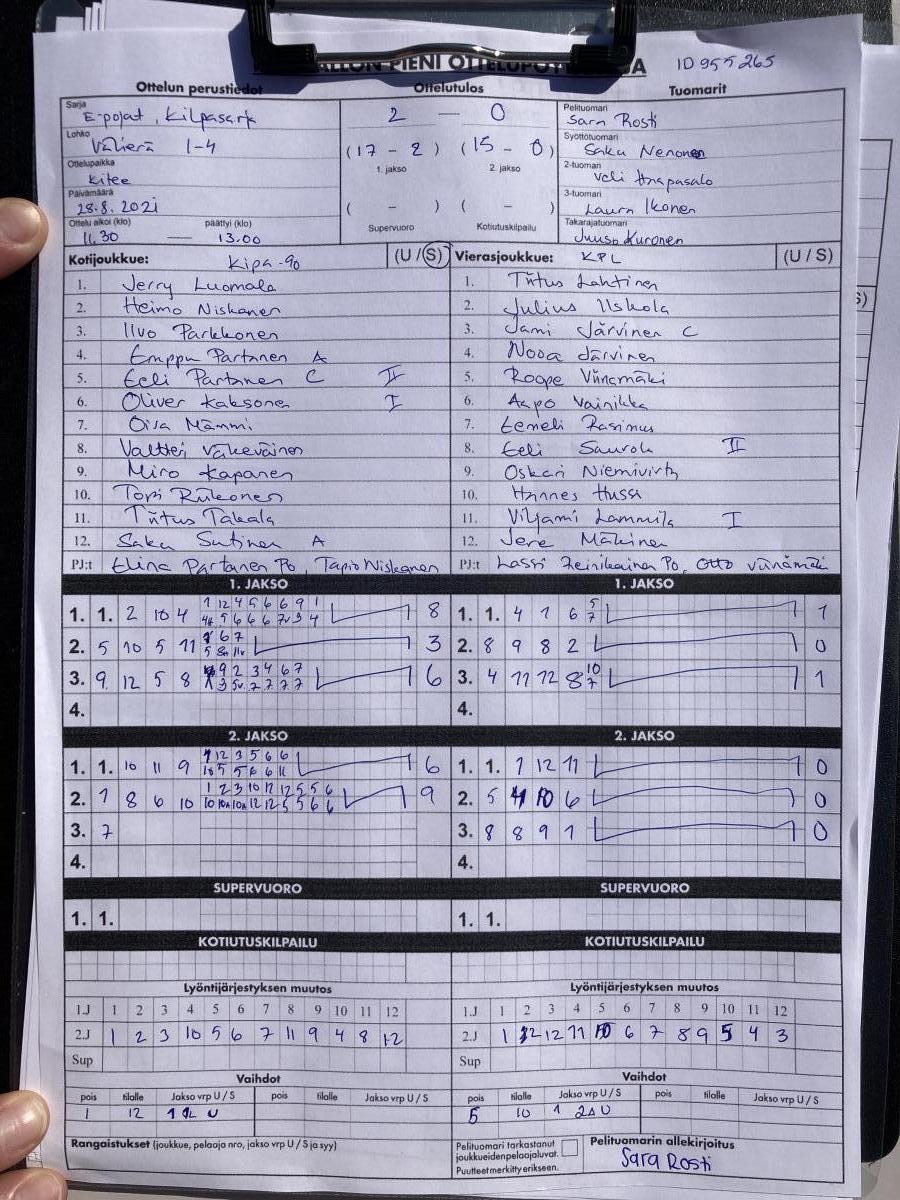 PIENI OTTELUPÖYTÄKIRJA ID 955265
Ottelun perustiedot
Sarja
E-pojat, Kilpasarja
Lohko
Välierä 1-4
Ottelupaikka
Kitee
Päivämäärä
28.8.2021
Ottelu alkoi (klo) päättyi (klo)
11.30 — 13.00
Ottelutulos
2 — 0
(17 - 2) (15 - 0)
1. jakso 2. jakso
( - ) ( - )
Supervuoro Kotiutuskilpailu
Tuomarit
Pelituomari
Sara Rosti
Syöttötuomari
Saku Nenonen
2-tuomari
Veli Haapasalo
3-tuomari
Laura Ikonen
Takarajatuomari
Juuso Kuronen
Kotijoukkue: Kipa-90 (U / S)
1. Jerry Luomala
2. Heimo Niskanen
3. Ilvo Parkkonen
4. Emppu Partanen A
5. Eeli Partanen C II
6. Oliver Kaksonen I
7. Oiva Mämmi
8. Valtteri Väkeväinen
9. Miro Kapanen
10. Topi Riikonen
11. Tiitus Takala
12. Saku Sutinen A
PJ:t Elina Partanen Po, Tapio Niskanen
Vierasjoukkue: KPL (U / S)
1. Tiitus Lahtinen
2. Julius Uskola
3. Jami Järvinen C
4. Nooa Järvinen
5. Roope Viinamäki
6. Aapo Vainikka
7. Eemeli Rasimus
8. Eeli Saurola II
9. Oskari Niemivirta
10. Hannes Hussi
11. Viljami Lammila I
12. Jere Mäkinen
PJ:t Lassi Heinikainen Po, Otto Viinamäki
1. JAKSO
1. 1. 2 10 4 8
2. 5 10 5 11 3
3. 9 12 5 8 6
4.
1. JAKSO
1. 1. 4 1 6 5 7 1
2. 8 9 8 2 0
3. 4 11 12 8 10 7 1
4.
2. JAKSO
1. 1. 10 11 9 6
2. 1 8 6 10 9
3. 7
4.
2. JAKSO
1. 1. 1 12 11 0
2. 5 4 10 6 0
3. 8 8 9 1 0
4.
SUPERVUORO
1. 1.
SUPERVUORO
1. 1.
KOTIUTUSKILPAILU
KOTIUTUSKILPAILU
Lyöntijärjestyksen muutos
1.J 1 2 3 4 5 6 7 8 9 10 11 12
2.J 1 2 3 10 5 6 7 11 9 4 8 12
Sup
Lyöntijärjestyksen muutos
1.J 1 2 3 4 5 6 7 8 9 10 11 12
2.J 1 2 12 11 10 6 7 8 9 5 4 3
Sup
Vaihdot
pois tilalle Jakso vrp U / S pois tilalle Jakso vrp U / S
1 12 1 U
Vaihdot
pois tilalle Jakso vrp U / S pois tilalle Jakso vrp U / S
5 10 1 2A U
Rangaistukset (joukkue, pelaaja nro, jakso vrp U / S ja syy)
Pelituomari tarkastanut
joukkueiden pelaajaluvat.
Puutteet merkitty erikseen.
Pelituomarin allekirjoitus
Sara Rosti